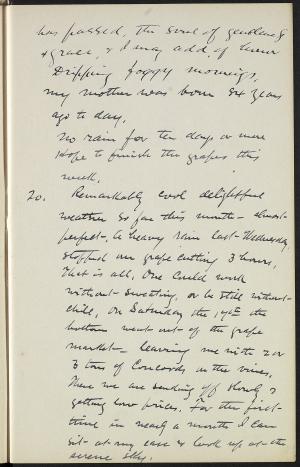 has passed, the soul of gentleness
& grace, & I may add, of terror
Dripping foggy mornings.
my mother was born 84 years
ago to day.
No rain for ten days or more
Hope to finish the grapes this
week.
20. Remarkably cool delightful
weather so far this month – almost
perfect –, A heavy rain last – Wednesday,
stopped our grape cutting 3 hours,
that is all. One could work
without – sweating, or be still without –
chill, On Saturday the 17th the
bottom went out – of the grape
market – leaving me with 2 or
3 tons of Concords on the vines,
These we are sending off slowly &
getting low prices. For the first –
time in nearly a month I can
sit – at my ease & look up at – the
serene sky.